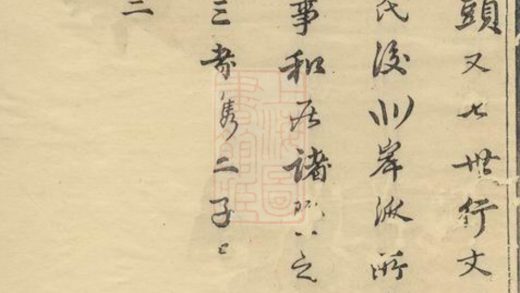 頭又七世行文
氏後川岸派所
事和居諸公之
三考雋二子
二